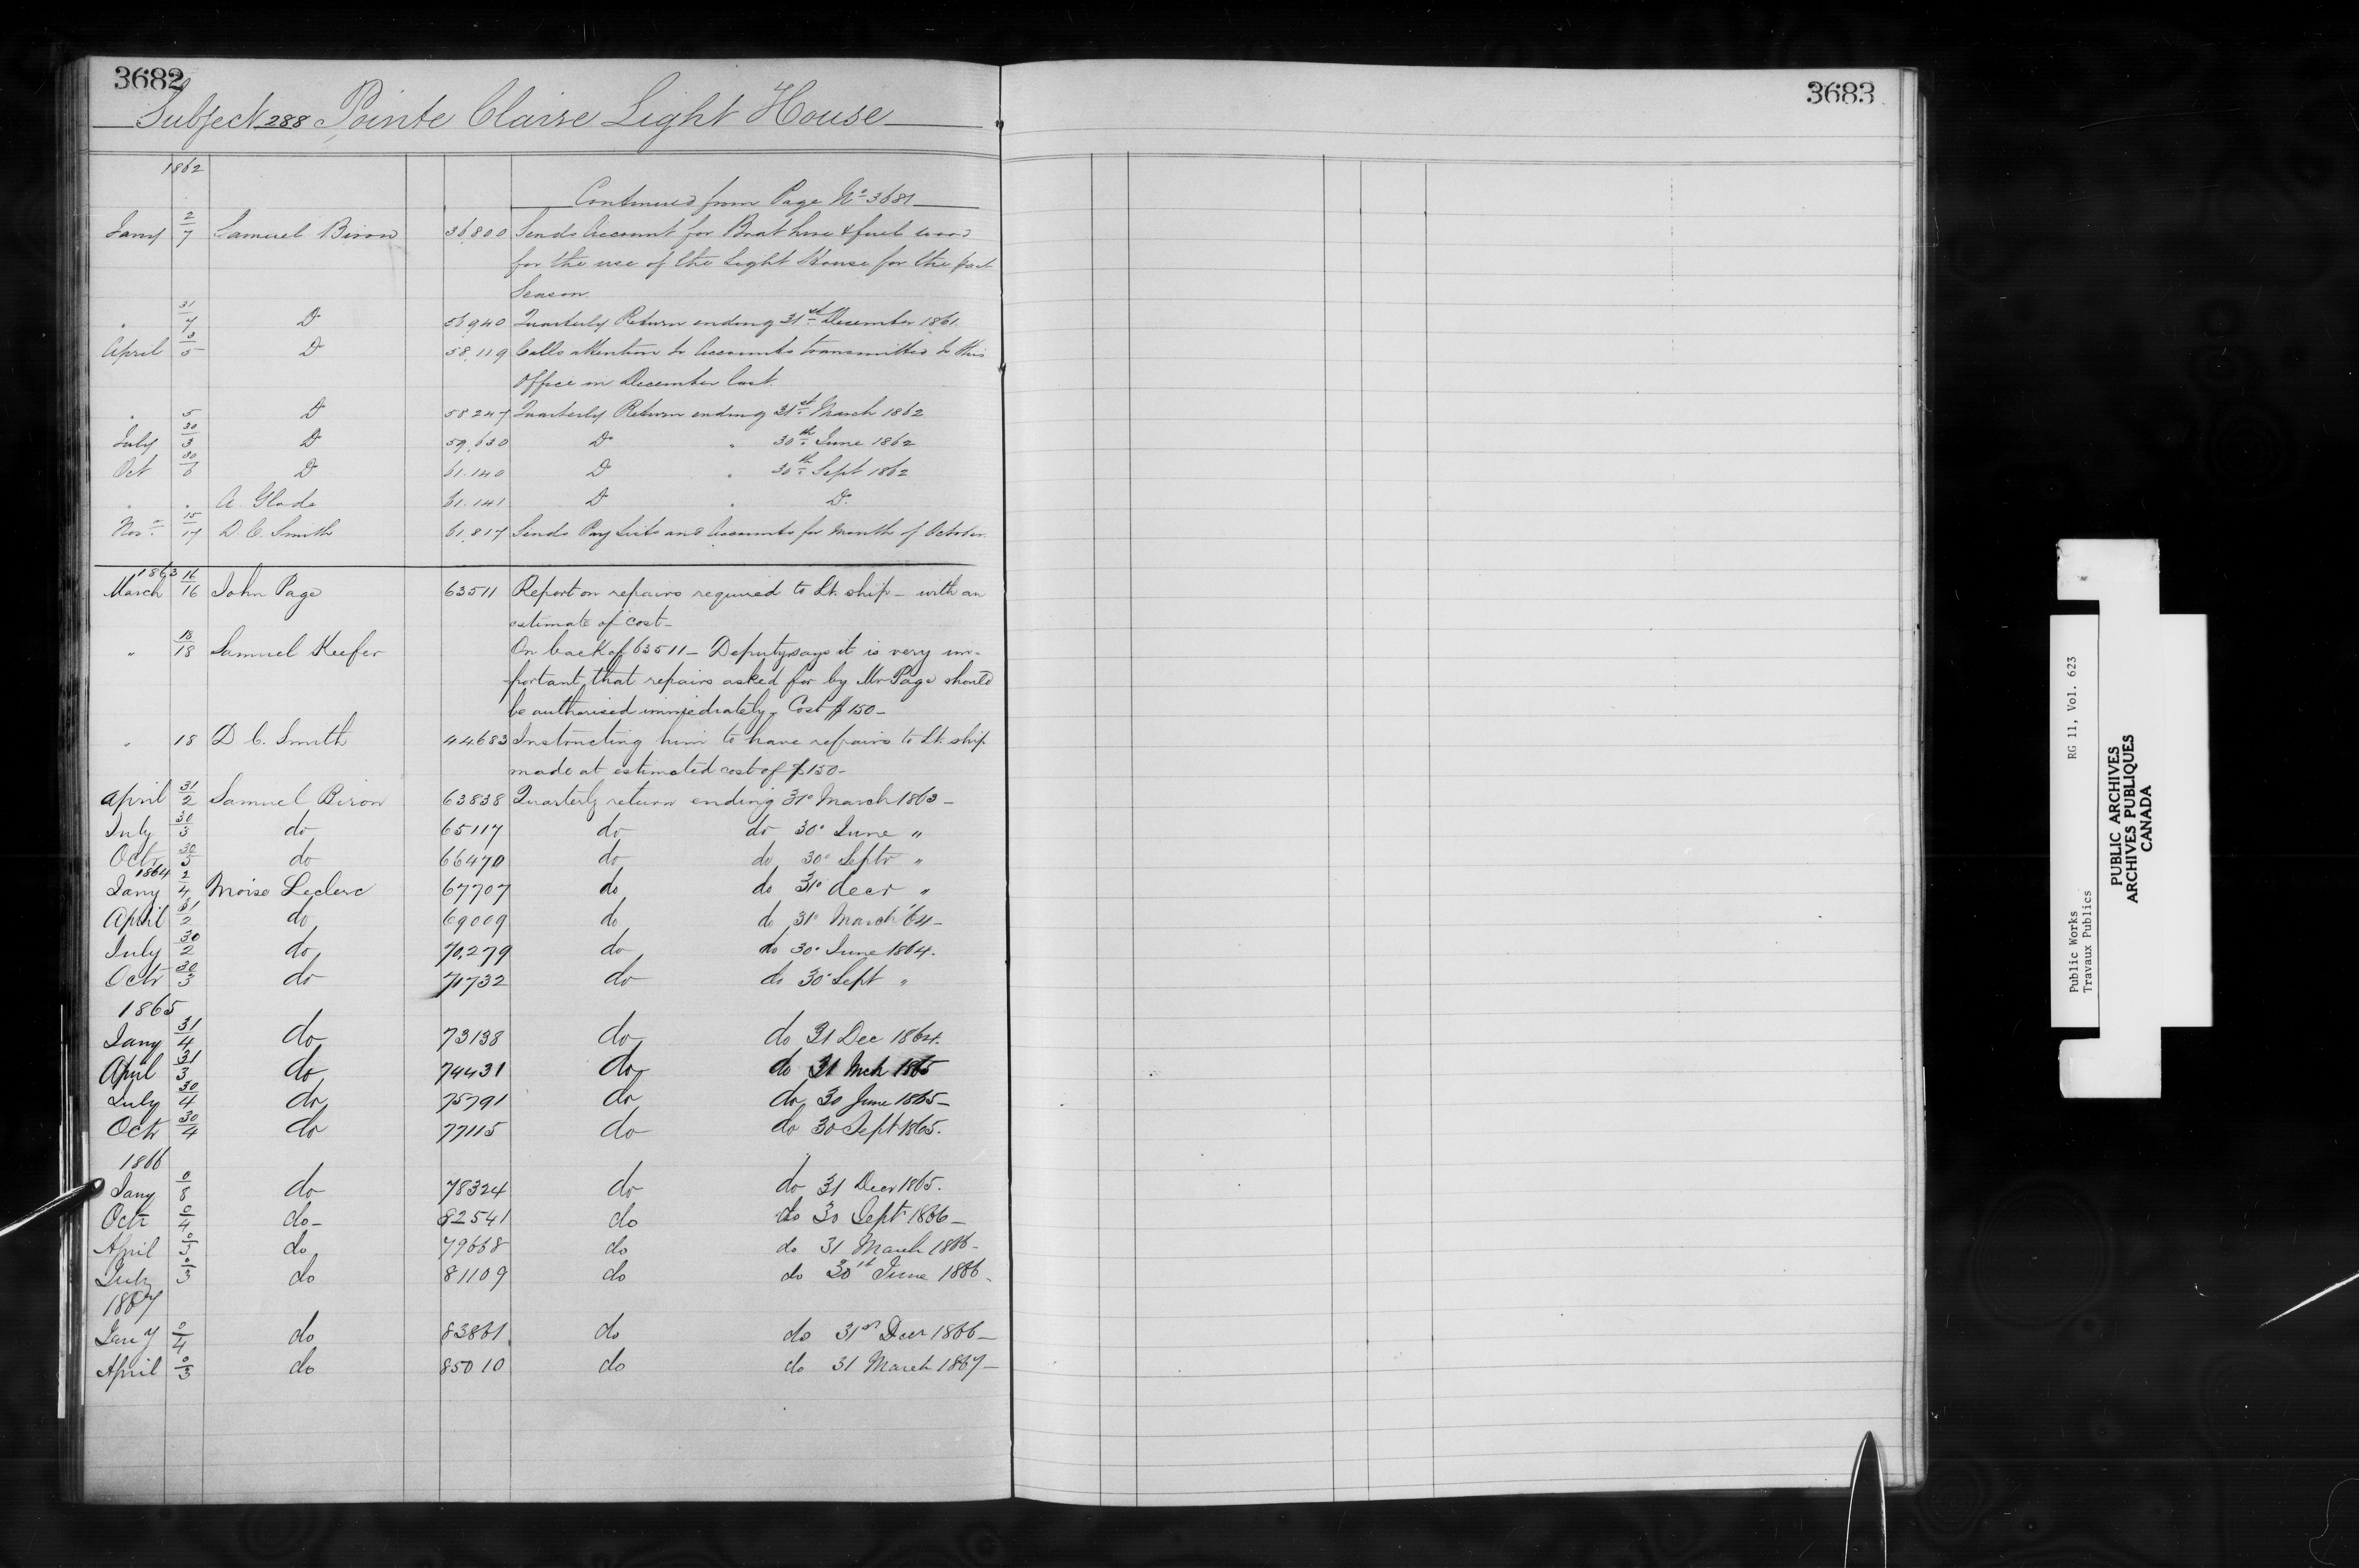 3682
Subject 288 Pointe Claire Light House
1862
Continued from Page No 3681
Jany 2/7 Samuel Biron 56,800 Sends Account for Boat hire & fuel wood
for the use of the Light House for the past
Season.
" 31/7 Do 56,940 Quarterly Return ending 31st December 1861.
April 3/5 Do 58,119 Calls attention to Accounts transmitted to this
Office in December last.
" 5 Do 58247 Quarterly Return ending 31st March 1862
July 30/3 Do 59,630 Do " 30th June 1862
Oct 30/6 Do 61.140 Do " 30th Sept 1862
" " A. Glade 61.141 Do " Do
Nov. 15/17 D. C. Smith 61,817 Sends Pay Lists and Accounts for Month of October.
1863
March 16/16 John Page 63511 Report on repairs required to Lt. ship - with an
estimate of cost -
" 18/18 Samuel Keefer On back of 63511 - Deputy says it is very im-
portant that repairs asked for by Mr Page should
be authorised immediately, Cost $150 -
" 18 D C. Smith 44683 Instructing him to have repairs to Lt. ship
made at estimated cost of $150 -
April 31/2 Samuel Biron 63838 Quarterly return ending 31o March 1863 -
July 30/3 do 65117 do do 30o June "
Octr 30/5 do 66470 do do 30o Septr "
1864
Jany 2/4 Moise Leclerc 67707 do do 31o decr "
April 31/2 do 69009 do do 31o March '64 -
July 30/2 do 70,279 do do 30o June 1864.
Octr 30/3 do 71732 do do 30o Sept "
1865
Jany 31/4 do 73138 do do 31 Dec 1864.
April 31/3 do 74431 do do 31 Mch 1865
July 30/4 do 75791 do do 30 June 1865 -
Octr 30/4 do 77115 do do 30 Sept 1865.
1866
Jany 0/8 do 78324 do do 31 Decr 1865.
Octr 0/4 do - 82541 do do 30 Sept. 1866 -
April 0/3 do 79668 do do 31 March 1866 -
July 0/3 do 81109 do do 30th June 1866 -
1867
Jany 0/4 do 83861 do do 31st Decr 1866 -
April 0/3 do 85010 do do 31 March 1867 -
3683
Public Works RG 11, Vol. 623
Travaux Publics
PUBLIC ARCHIVES
ARCHIVES PUBLIQUES
CANADA